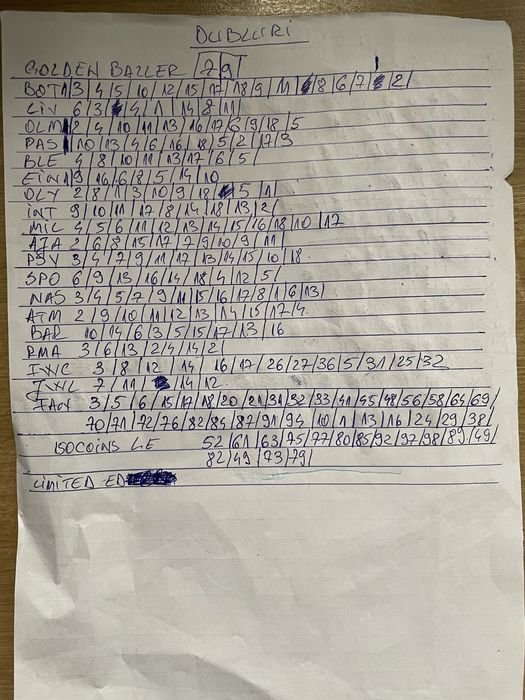 DUBLURI
GOLDEN BALLER |7|9|
BOT1|3|4|5|10|12|15|17|18|9|11|8|6|7|2|
LIV 6|3|4|1|14|8|11|
OLM 2|4|10|11|13|16|17|6|9|18|5
PAS 10|13|4|6|16|18|5|2|17|3
BLE 4|8|10|11|13|17|6|5|
EIN 1|9|16|6|8|5|14|10
OLY 2|8|1|3|10|9|18|5|1|
INT 9|10|11|17|8|14|18|13|2|
MIL 4|5|6|11|12|13|14|15|16|18|10|17
AJA 2|6|8|15|17|7|9|10|9|11|
PSV 3|4|7|9|11|17|13|14|15|10|18
SPO 6|9|13|16|14|18|4|12|5|
NAS 3|4|5|7|9|11|15|16|17|8|1|6|13|
ATM 2|9|10|11|12|13|14|15|17|4
BAR 10|14|6|3|5|15|17|13|16
RMA 3|6|13|2|4|14|2|
IWC 3|8|12|14|16|17|26|27|36|5|31|25|32
IWL 7|11|14|12
3|5|6|15|17|18|20|21|31|32|33|41|45|48|56|58|64|69|
70|71|72|76|82|84|87|91|94|10|1|13|16|24|29|38|
ISOCOINS L.E 52|61|63|75|77|80|85|92|97|98|89|49|
82|49|73|79|
LIMITED ED